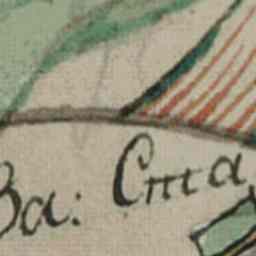 Ba: Cma